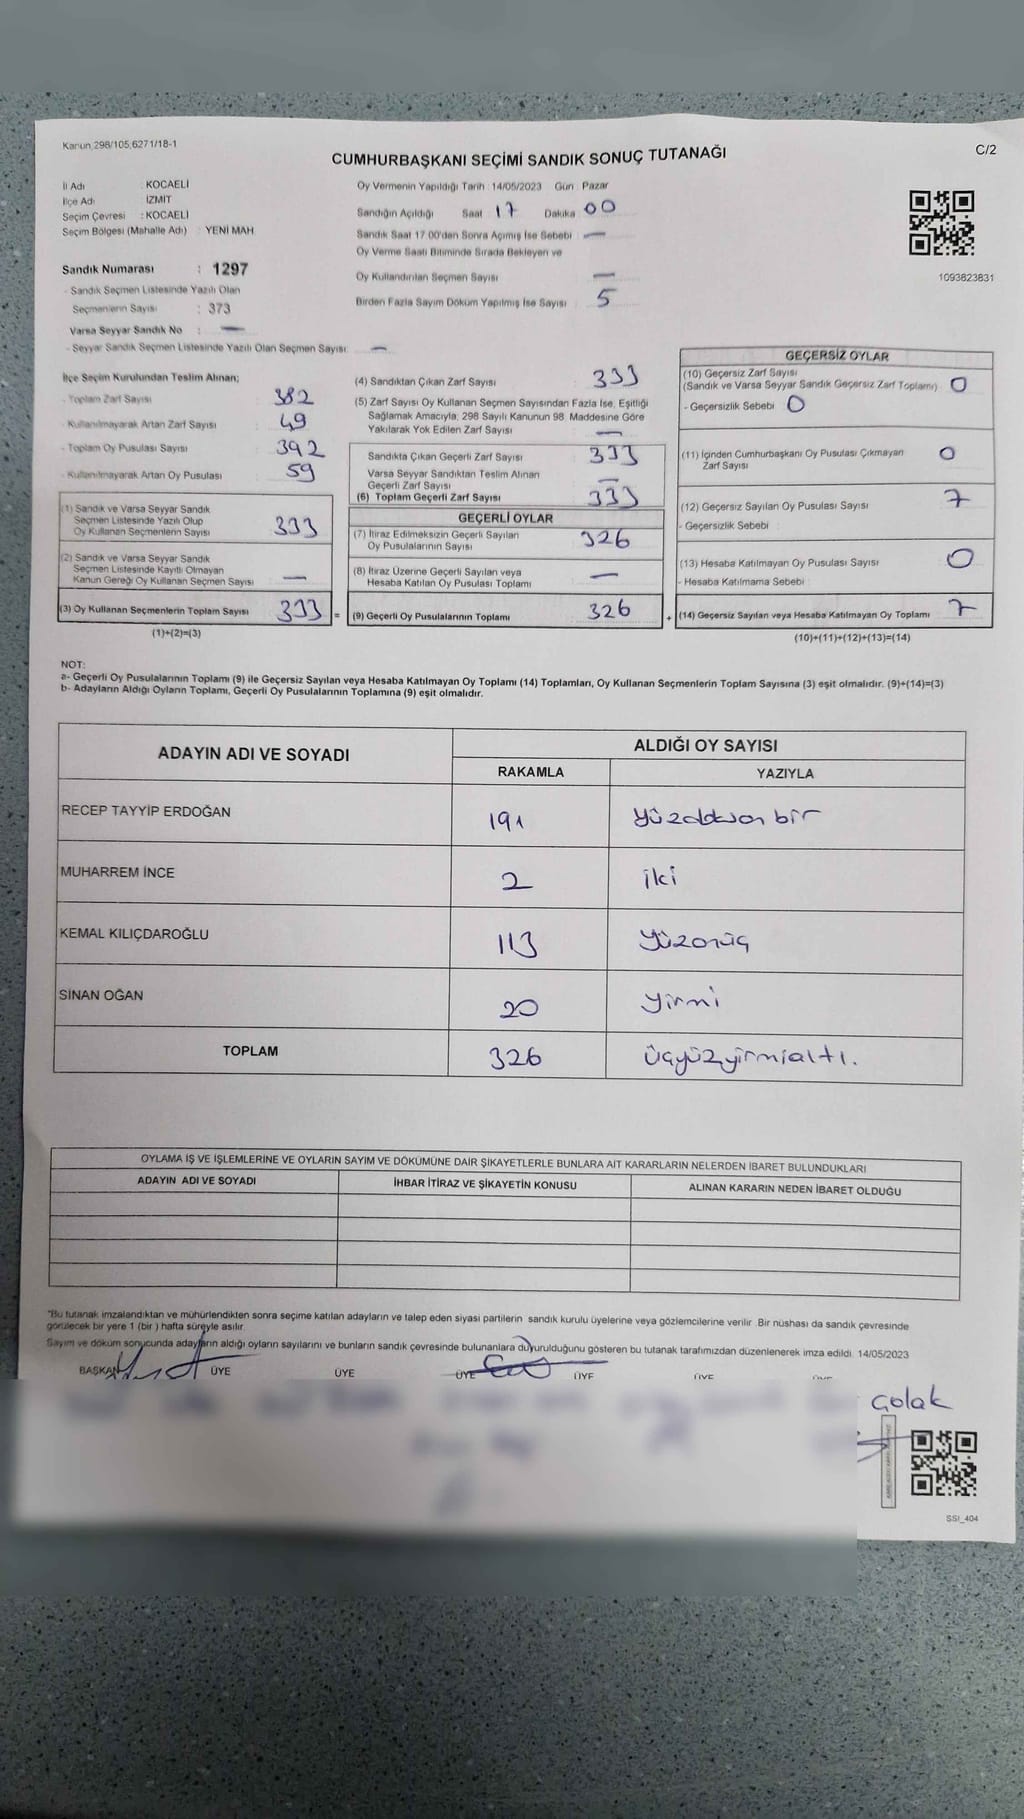 Kanun 298/105,6271/18-1
C/2
CUMHURBAŞKANI SEÇİMİ SANDIK SONUÇ TUTANAĞI
İl Adı : KOCAELİ
İlçe Adı : İZMİT
Seçim Çevresi : KOCAELİ
Seçim Bölgesi (Mahalle Adı) : YENİ MAH
Sandık Numarası : 1297
- Sandık Seçmen Listesinde Yazılı Olan
Seçmenlerin Sayısı : 373
Varsa Seyyar Sandık No : —
- Seyyar Sandık Seçmen Listesinde Yazılı Olan Seçmen Sayısı: —
Oy Vermenin Yapıldığı Tarih : 14/05/2023 Gün : Pazar
Sandığın Açıldığı Saat 17 Dakika 00
Sandık Saat 17.00'den Sonra Açılmış İse Sebebi : —
Oy Verme Saati Bitiminde Sırada Bekleyen ve
Oy Kullandırılan Seçmen Sayısı —
Birden Fazla Sayım Döküm Yapılmış İse Sayısı : 5
1093823831
İlçe Seçim Kurulundan Teslim Alınan;
- Toplam Zarf Sayısı 382
- Kullanılmayarak Artan Zarf Sayısı 49
- Toplam Oy Pusulası Sayısı 392
- Kullanılmayarak Artan Oy Pusulası 59
(1) Sandık ve Varsa Seyyar Sandık
Seçmen Listesinde Yazılı Olup
Oy Kullanan Seçmenlerin Sayısı 333
(2) Sandık ve Varsa Seyyar Sandık
Seçmen Listesinde Kayıtlı Olmayan
Kanun Gereği Oy Kullanan Seçmen Sayısı —
(3) Oy Kullanan Seçmenlerin Toplam Sayısı 333 =
(1)+(2)=(3)
(4) Sandıktan Çıkan Zarf Sayısı 333
(5) Zarf Sayısı Oy Kullanan Seçmen Sayısından Fazla İse, Eşitliği
Sağlamak Amacıyla; 298 Sayılı Kanunun 98. Maddesine Göre
Yakılarak Yok Edilen Zarf Sayısı —
Sandıkta Çıkan Geçerli Zarf Sayısı 333
Varsa Seyyar Sandıktan Teslim Alınan
Geçerli Zarf Sayısı —
(6) Toplam Geçerli Zarf Sayısı 333
GEÇERLİ OYLAR
(7) İtiraz Edilmeksizin Geçerli Sayılan
Oy Pusulalarının Sayısı 326
(8) İtiraz Üzerine Geçerli Sayılan veya
Hesaba Katılan Oy Pusulası Toplamı —
(9) Geçerli Oy Pusulalarının Toplamı 326 +
GEÇERSİZ OYLAR
(10) Geçersiz Zarf Sayısı
(Sandık ve Varsa Seyyar Sandık Geçersiz Zarf Toplamı) 0
- Geçersizlik Sebebi : 0
(11) İçinden Cumhurbaşkanı Oy Pusulası Çıkmayan
Zarf Sayısı 0
(12) Geçersiz Sayılan Oy Pusulası Sayısı 7
- Geçersizlik Sebebi :
(13) Hesaba Katılmayan Oy Pusulası Sayısı 0
- Hesaba Katılmama Sebebi :
(14) Geçersiz Sayılan veya Hesaba Katılmayan Oy Toplamı 7
(10)+(11)+(12)+(13)=(14)
NOT:
a- Geçerli Oy Pusulalarının Toplamı (9) ile Geçersiz Sayılan veya Hesaba Katılmayan Oy Toplamı (14) Toplamları, Oy Kullanan Seçmenlerin Toplam Sayısına (3) eşit olmalıdır. (9)+(14)=(3)
b- Adayların Aldığı Oyların Toplamı, Geçerli Oy Pusulalarının Toplamına (9) eşit olmalıdır.
ADAYIN ADI VE SOYADI ALDIĞI OY SAYISI
RAKAMLA YAZIYLA
RECEP TAYYİP ERDOĞAN 191 Yüzdoksan bir
MUHARREM İNCE 2 iki
KEMAL KILIÇDAROĞLU 113 Yüzonüç
SİNAN OĞAN 20 Yirmi
TOPLAM 326 Üçyüzyirmialtı.
OYLAMA İŞ VE İŞLEMLERİNE VE OYLARIN SAYIM VE DÖKÜMÜNE DAİR ŞİKAYETLERLE BUNLARA AİT KARARLARIN NELERDEN İBARET BULUNDUKLARI
ADAYIN ADI VE SOYADI İHBAR İTİRAZ VE ŞİKAYETİN KONUSU ALINAN KARARIN NEDEN İBARET OLDUĞU
"Bu tutanak imzalandıktan ve mühürlendikten sonra seçime katılan adayların ve talep eden siyasi partilerin sandık kurulu üyelerine veya gözlemcilerine verilir. Bir nüshası da sandık çevresinde
görülecek bir yere 1 (bir ) hafta süreyle asılır.
Sayım ve döküm sonucunda adayların aldığı oyların sayılarını ve bunların sandık çevresinde bulunanlara duyurulduğunu gösteren bu tutanak tarafımızdan düzenlenerek imza edildi. 14/05/2023
BAŞKAN ÜYE ÜYE ÜYE ÜYE ÜYE ÜYE
Çolak
SSI_404